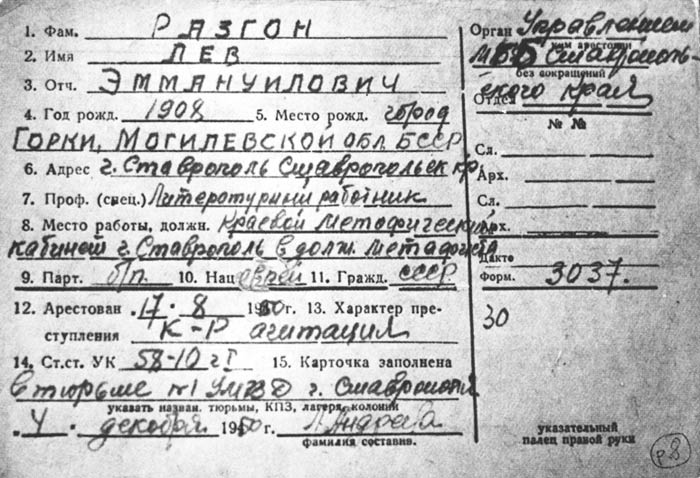 1. Фам. РАЗГОН
2. Имя ЛЕВ
3. Отч. ЭММАНУИЛОВИЧ
4. Год рожд. 1908 5. Место рожд. город
ГОРКИ, МОГИЛЕВСКОЙ ОБЛ. БССР
6. Адрес г. Ставрополь Ставропольск кр.
7. Проф. (спец.) Литературный работник
8. Место работы, должн. Краевой методический
кабинет г. Ставрополь в долж. методиста
9. Парт. б/п. 10. Нац еврей 11. Гражд. СССР
12. Арестован 17. 8 1950г. 13. Характер пре-
ступления К-Р агитация
14. Ст.ст. УК 58-10 ч I 15. Карточка заполнена
в тюрьме №1 УМВД г. Ставрополя
указать назван. тюрьмы, КПЗ, лагеря, колонии
"4" декабря 1950 г.
фамилия составив.
Орган Управлением
кем арестован
МГБ Ставрополь-
без сокращений
ского края
Отдел
№ №
Сл.
Арх.
Сл.
Арх.
Дакто
Форм. 3037.
30
указательный
палец правой руки